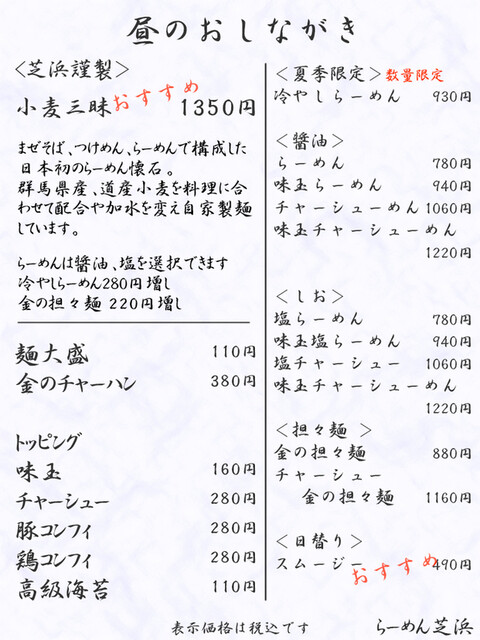 昼のおしながき
<芝浜謹製>
おすすめ
小麦三昧 1350円
まぜそば、つけめん、らーめんで構成した
日本初のらーめん懐石。
群馬県産、道産小麦を料理に合
わせて配合や加水を変え自家製麺
しています。
らーめんは醤油、塩を選択できます
冷やしらーめん280円増し
金の担々麺 220円増し
麺大盛 110円
金のチャーハン 380円
トッピング
味玉 160円
チャーシュー 280円
豚コンフィ 280円
鶏コンフィ 280円
高級海苔 110円
<夏季限定>数量限定
冷やしらーめん 930円
<醤油>
らーめん 780円
味玉らーめん 940円
チャーシューめん 1060円
味玉チャーシューめん
1220円
<しお>
塩らーめん 780円
味玉塩らーめん 940円
塩チャーシュー 1060円
味玉チャーシューめん
1220円
<担々麺 >
金の担々麺 880円
チャーシュー
金の担々麺 1160円
<日替り>
スムージー 490円
おすすめ
表示価格は税込です
らーめん芝浜